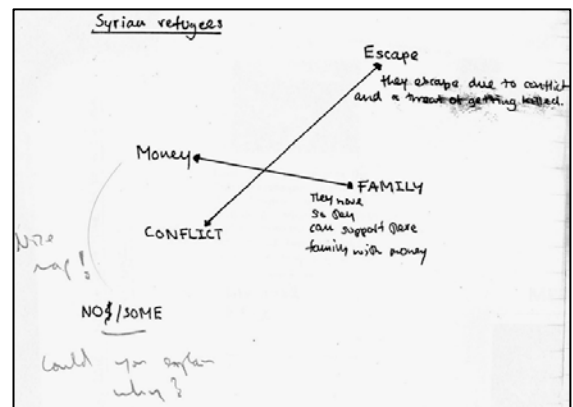 Syrian refugees
Escape
they escape due to conflict
and a threat of getting killed.
Money
FAMILY
They move
so they
can support
family with money
CONFLICT
Nice
map!
NO$/SOME
Could you explain
why?